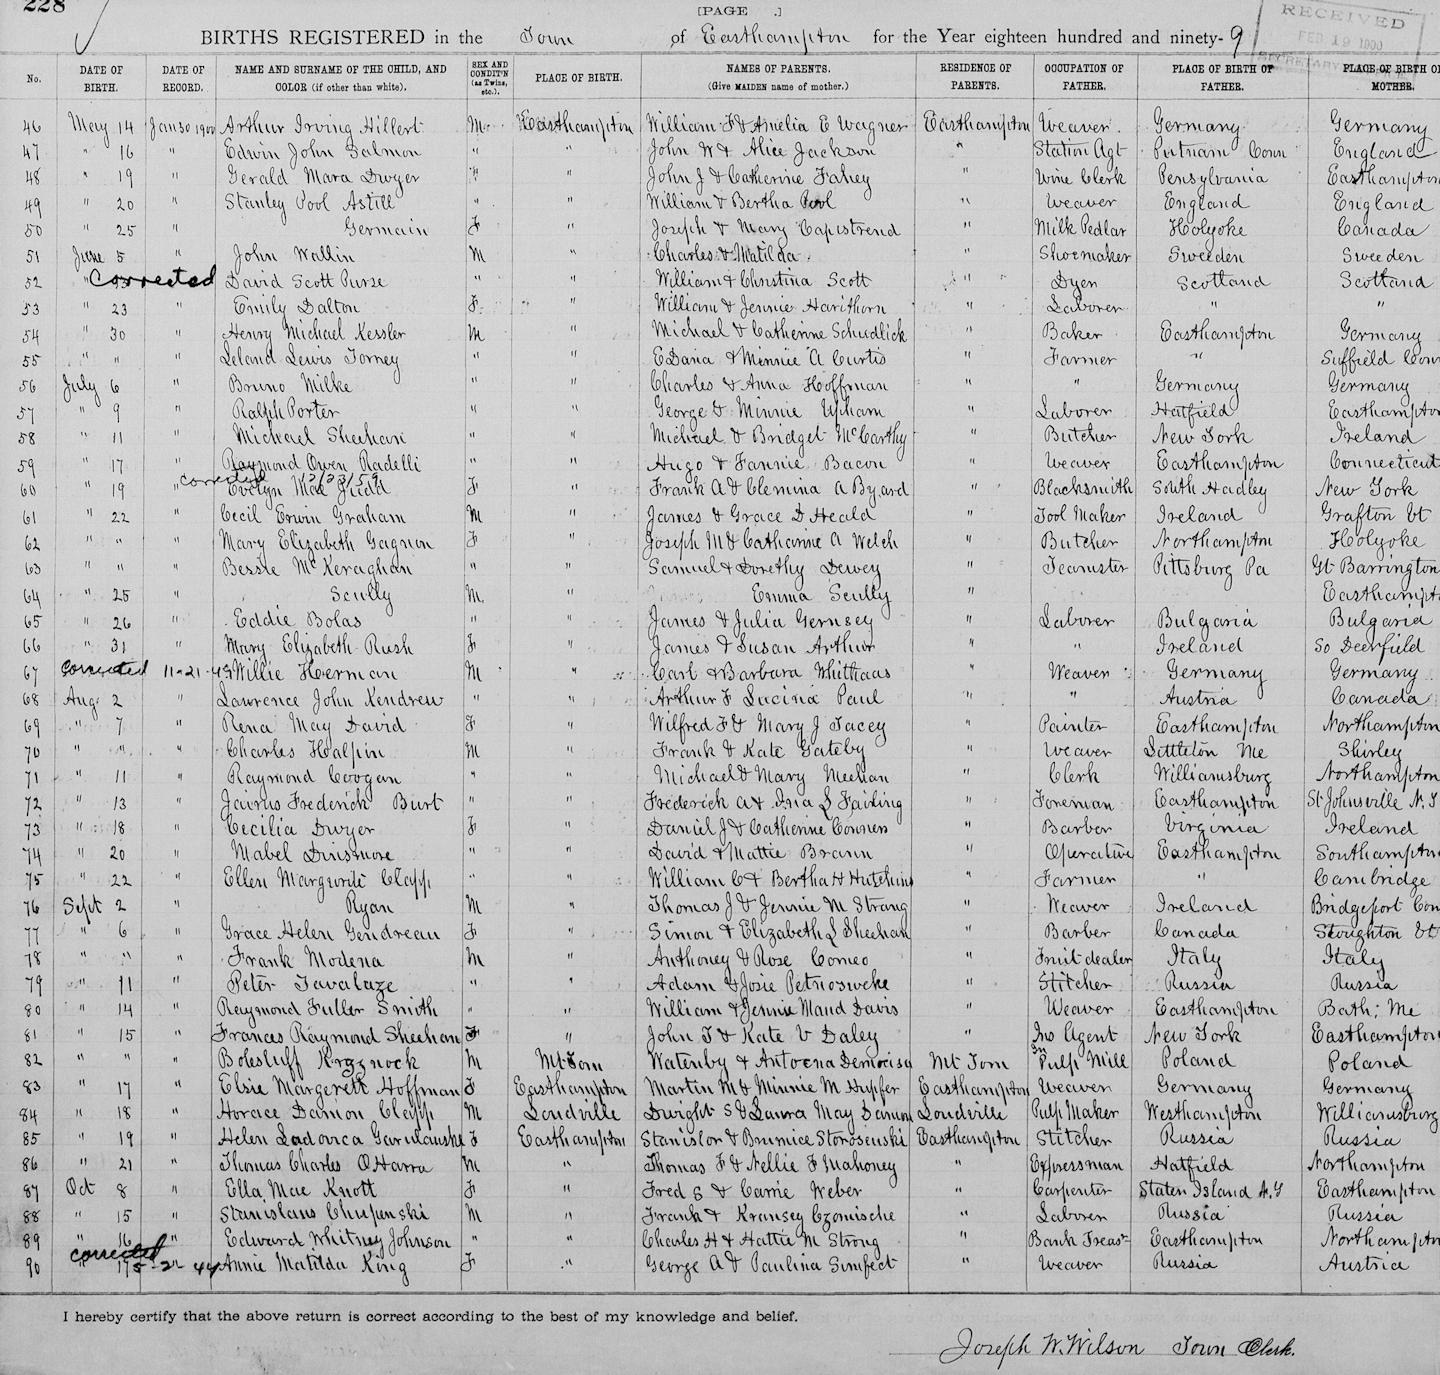 228
[PAGE .]
BIRTHS REGISTERED in the Town of Easthampton for the Year eighteen hundred and ninety-9
RECEIVED
FEB 19 1900
SECRETARY
No. DATE OF BIRTH. DATE OF RECORD. NAME AND SURNAME OF THE CHILD, AND COLOR (if other than white). SEX AND CONDIT'N (as Twins, etc.). PLACE OF BIRTH. NAMES OF PARENTS. (Give MAIDEN name of mother.) RESIDENCE OF PARENTS. OCCUPATION OF FATHER. PLACE OF BIRTH OF FATHER. PLACE OF BIRTH OF MOTHER.
46 May 14 Jan 30 1900 Arthur Irving Hillert M. Easthampton William F & Amelia E Wagner Easthampton Weaver Germany Germany
47 " 16 " Edwin John Salmon " " John W & Alice Jackson " Station Agt Putnam Conn England
48 " 19 " Gerald Mara Dwyer " " John J & Catherine Fahey " Wine Clerk Pensylvania Easthampton
49 " 20 " Stanley Pool Astill " " William & Bertha Pool " Weaver England England
50 " 25 " Germain F " Joseph & Mary Capistrend " Milk Pedlar Holyoke Canada
51 June 5 " John Wallin M " Charles & Matilda " Shoemaker Sweeden Sweeden
52 " Corrected David Scott Purse " " William & Christina Scott " Dyer Scotland Scotland
53 " 23 " Emily Dalton F " William & Jennie Harithorn " Laborer " "
54 " 30 " Henry Michael Kessler M " Michael & Catherine Schudlick " Baker Easthampton Germany
55 " " " Leland Lewis Torrey " " E Dana & Minnie A Curtis " Farmer " Suffield Conn
56 July 6 " Bruno Milke " " Charles & Anna Hoffman " " Germany Germany
57 " 9 " Ralph Porter " " George & Minnie Upham " Laborer Hatfield Easthampton
58 " 11 " Michael Sheehan " " Michael & Bridget McCarthy " Butcher New York Ireland
59 " 17 " Raymond Owen Radelli " " Hugo & Fannie Bacon " Weaver Easthampton Connecticut
corrected 12/23/59
60 " 19 " Evelyn Mae Judd F " Frank A & Clemina A Byard " Blacksmith South Hadley New York
61 " 22 " Cecil Erwin Graham M " James & Grace D Heald " Tool Maker Ireland Grafton Vt
62 " " " Mary Elizabeth Gagnon F " Joseph M & Catharine A Welch " Butcher Northampton Holyoke
63 " " " Bessie McKeraghan " " Samuel & Dorethy Dewey " Teamster Pittsburg Pa Gt Barrington
64 " 25 " Scully M. " Emma Scully " Easthampton
65 " 26 " Eddie Bolas " " James & Julia Gernsey " Laborer Bulgaria Bulgaria
66 " 31 " Mary Elizabeth Rush F " James & Susan Arthur " " Ireland So Deerfield
67 corrected 11-21-42 Willie Herman M " Carl & Barbara Whithaas " Weaver Germany Germany
68 Aug 2 " Lawrence John Kendrew " " Arthur F Lucina Paul " " Austria Canada
69 " 7 " Rena May David F " Wilfred F & Mary J Tacey " Painter Easthampton Northampton
70 " " " Charles Halpin M " Frank & Kate Gateby " Weaver Littleton Me Shirley
71 " 11 " Raymond Coogan " " Michael & Mary Meehan " Clerk Williamsburg Northampton
72 " 13 " Jairus Frederick Burt " " Frederick A & Ina L Fairing " Foreman Easthampton St Johnsville N.Y
73 " 18 " Cecilia Dwyer F " Daniel J & Catherine Conners " Barber Virginia Ireland
74 " 20 " Mabel Dinsmore " " David & Mattie Brann " Operative Easthampton Southampton
75 " 22 " Ellen Margurite Clapp " " William C & Bertha H Hutchins " Farmer " Cambridge
76 Sept 2 " Ryan M " Thomas J & Jennie M Strang " Weaver Ireland Bridgeport Con
77 " 6 " Grace Helen Gendreau F " Simon & Elizabeth L Sheehan " Barber Canada Stoughton Vt
78 " " " Frank Modena M " Anthoney & Rose Comeo " Fruit dealer Italy Italy
79 " 11 " Peter Tavalaze " " Adam & Josie Petriosweke " Stitcher Russia Russia
80 " 14 " Raymond Fuller Smith " " William & Jennie Maud Davis " Weaver Easthampton Bath, Me
81 " 15 " Frances Raymond Sheehan F " John T & Kate V Daley " Ins Agent New York Easthampton
82 " " " Bolesluff Krzynock M Mt Tom Watenby & Antoena Demociss Mt Tom In Pulp Mill Poland Poland
83 " 17 " Elsie Margerett Hoffman F Easthampton Martin M & Minnie M Hupfer Easthampton Weaver Germany Germany
84 " 18 " Horace Damon Clapp M Loudville Dwight S & Laura May Damon Loudville Pulp Maker Westhampton Williamsburg
85 " 19 " Helen Ladovica Garulauske F Easthampton Stanislor & Brumice Storosenski Easthampton Stitcher Russia Russia
86 " 21 " Thomas Charles O Harra M " Thomas F & Nellie F Mahoney " Expressman Hatfield Northampton
87 Oct 8 " Ella Mae Knott F " Fred S & Carrie Weber " Carpenter Staten Island N.Y Easthampton
88 " 15 " Stanislaus Chupenski M " Frank & Kransey Czomische " Laborer Russia Russia
89 " 16 " Edward Whitney Johnson " " Charles H & Hattie M Strong " Bank Treas- Easthampton Northampton
corrected
90 " 17 5-2-44 Annie Matilda King F " George A & Paulina Simfect " Weaver Russia Austria
I hereby certify that the above return is correct according to the best of my knowledge and belief.
Joseph W. Wilson Town Clerk.